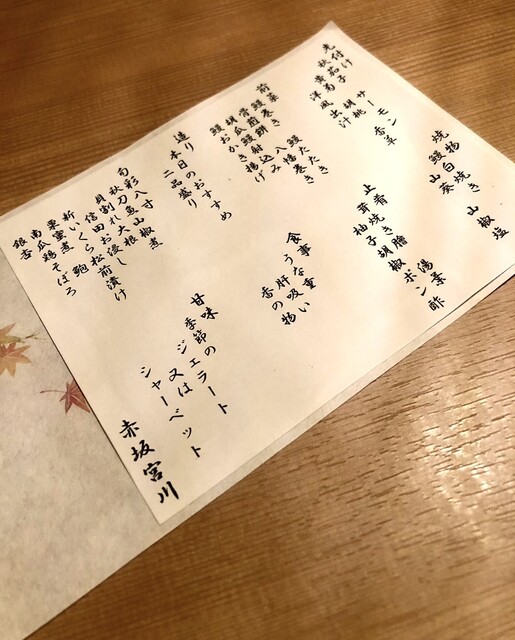 先付け
秋茄子 サーモン 香草
黄菊 胡桃
洋風出汁
前菜
鰻巻き 鰻たたき
骨煎餅 八幡巻き
胡瓜射込み
鰻おかき揚げ
造り
本日のおすすめ
二品盛り
旬彩 八寸
秋刀魚山椒煮
貝割れ大根
お浸し
松前漬け
新いくら
栗蜜煮
南瓜鶏そぼろ
銀杏
焼物
鰻白焼き
山葵 山椒塩
止肴
茸焼き
柚子胡椒 ポン酢
食事
うな重
肝吸い
香の物
甘味
季節のジェラート
又は
シャーベット
赤坂宮川